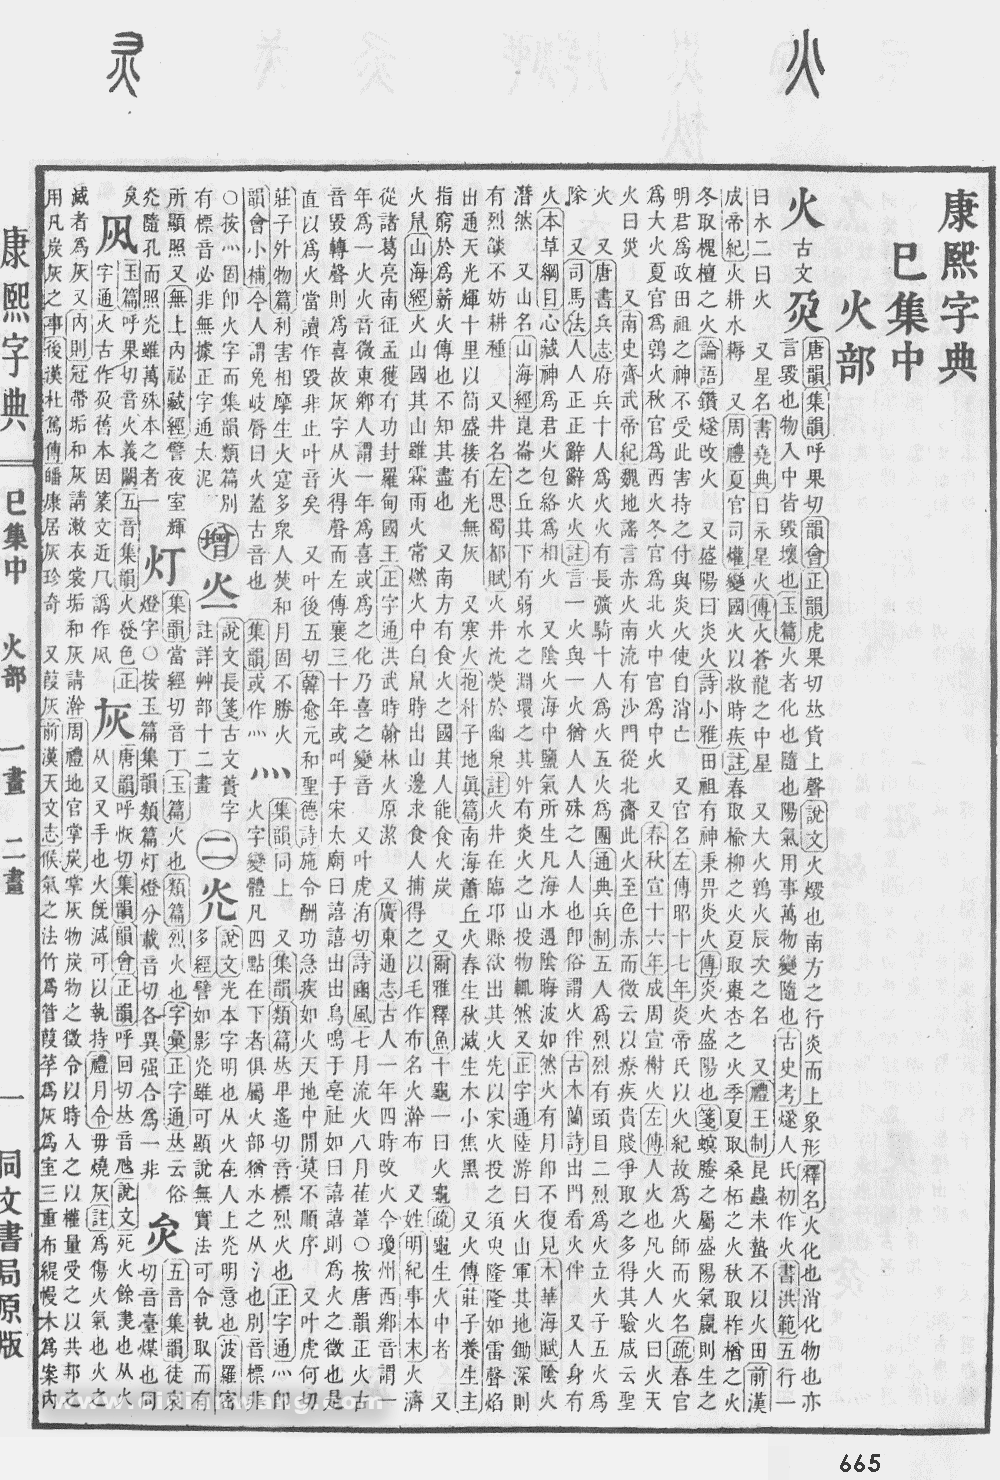 火
康熙字典
巳集中
火部
火 古文 𤆄 唐韻集韻呼果切韻會正韻虎果切𠀤貨上聲說文火燬也南方之行炎而上象形釋名火化也消化物也亦
言毀也物入中皆毀壞也玉篇火者化也隨也陽氣用事萬物變隨也古史考燧人氏初作火書洪範五行一
曰水二曰火 又星名書堯典日永星火傳火蒼龍之中星 又大火鶉火辰次之名 又禮王制昆蟲未蟄不以火田前漢
成帝紀火耕水耨 又周禮夏官司爟變國火以救時疾註春取榆柳之火夏取棗杏之火季夏取桑柘之火秋取柞楢之火
冬取槐檀之火論語鑽燧改火 又盛陽曰炎火詩小雅田祖有神秉畀炎火傳炎火盛陽也箋螟螣之屬盛陽氣贏則生之
明君爲政田祖之神不受此害持之付與炎火使自消亡 又官名左傳昭十七年炎帝氏以火紀故爲火師而火名疏春官
爲大火夏官爲鶉火秋官爲西火冬官爲北火中官爲中火 又春秋宣十六年成周宣榭火左傳人火也凡火人火曰火天
火曰災 又南史齊武帝紀魏地謠言赤火南流有沙門從北齎此火至色赤而微云以療疾貴賤爭取之多得其驗咸云聖
火 又唐書兵志府兵十人爲火火有長彍騎十人爲火五火爲團通典兵制五人爲烈烈有頭目二烈爲火立火子五火爲
隊 又司馬法人人正正辭辭火火註言一火與一火猶人人殊之人人也卽俗謂火伴古木蘭詩出門看火伴 又人身有
火本草綱目心藏神爲君火包絡爲相火 又陰火海中鹽氣所生凡海水遇陰晦波如然火有月卽不復見木華海賦陰火
潛然 又山名山海經崑崙之丘其下有弱水之淵環之其外有炎火之山投物輒然又正字通陸游曰火山軍其地鋤深則
有烈燄不妨耕種 又井名左思蜀都賦火井沈熒於幽泉註火井在臨邛縣欲出其火先以家火投之須臾隆隆如雷聲焰
出通天光輝十里以筒盛接有光無灰 又寒火抱朴子地眞篇南海蕭丘火春生秋滅生木小焦黑 又火傳莊子養生主
指窮於爲薪火傳也不知其盡也 又南方有食火之國其人能食火炭 又爾雅釋魚十龜一曰火龜疏龜生火中者 又
火鼠山海經火山國其山雖霖雨火常燃火中白鼠時出山邊求食人捕得之以毛作布名火澣布 又姓明紀事本末火濟
從諸葛亮南征孟獲有功封羅甸國王正字通洪武時翰林火原潔 又廣東通志古人一年四時改火今瓊州西鄉音謂一
年爲一火火音微東鄉人謂一年爲喜或爲之化乃喜之變音 又叶虎洧切詩豳風七月流火八月萑葦○按唐韻正火古
音毀轉聲則爲喜故灰字从火得聲而左傳襄三十年或叫于宋太廟曰譆譆出出鳥鳴于亳社如曰譆譆則爲火之徵也是
直以爲火當讀作毀非止叶音矣 又叶後五切韓愈元和聖德詩施令酬功急疾如火天地中閒莫不順序 又叶虎何切
莊子外物篇利害相摩生火寔多衆人焚和月固不勝火
韻會小補今人謂兔岐脣曰火蓋古音也 集韻或作灬
灬 集韻同上 又集韻類篇𠀤𤰞遙切音標烈火也正字通灬卽
火字變體凡四點在下者俱屬火部猶水之从氵也別音標非
○按灬固卽火字而集韻類篇別
有標音必非無據正字通太泥
增 說文長箋古文蕢字
註詳艸部十二畫
二 灮 說文光本字明也从火在人上灮明意也波羅密
多經譬如影灮雖可顯說無實法可令執取而有
所顯照又無上內祕藏經譬夜室輝
灮隨孔而照灮雖萬殊本之者一
灯 集韻當經切音丁玉篇火也類篇烈火也字彙正字通𠀤云俗
燈字○按玉篇集韻類篇灯燈分載音切各異强合爲一非
矣
灻 五音集韻徒哀
切音臺煤也同
玉篇呼果切音火義闕五音集韻火發色正
字通火古作𤆄舊本因篆文近𠘨譌作凨
灰 唐韻呼恢切集韻韻會正韻呼回切𠀤音虺說文死火餘㶳也从火
从又又手也火旣滅可以執持禮月令毋燒灰註爲傷火氣也火之
滅者爲灰又內則冠帶垢和灰請漱衣裳垢和灰請澣周禮地官掌炭掌灰物炭物之徵令以時入之以權量受之以共邦之
用凡炭灰之事後漢杜篤傳皤康居灰珍奇 又葭灰前漢天文志候氣之法竹爲管葭莩爲灰爲室三重布緹幔木爲案內
康熙字典
巳集中
火部
一畫
二畫
一
同文書局原版
665